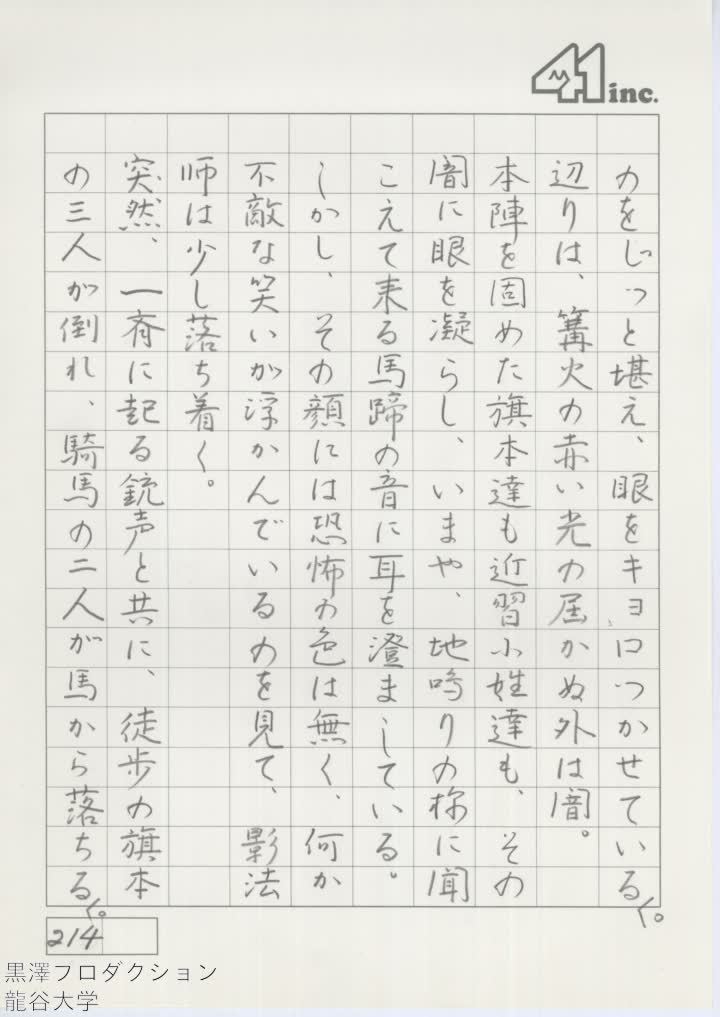 41 inc.
のをじっと堪え、眼をキョロつかせている。
辺りは、篝火の赤い光の届かぬ外は闇。
本陣を固めた旗本達も近習小姓達も、その
闇に眼を凝らし、いまや、地鳴りの様に聞
こえて来る馬蹄の音に耳を澄ましている。
しかし、その顔には恐怖の色は無く、何か
不敵な笑いが浮かんでいるのを見て、影法
師は少し落ち着く。
突然、一斉に起る銃声と共に、徒歩の旗本
の三人が倒れ、騎馬の二人が馬から落ちる。
214
黒澤プロダクション
龍谷大学